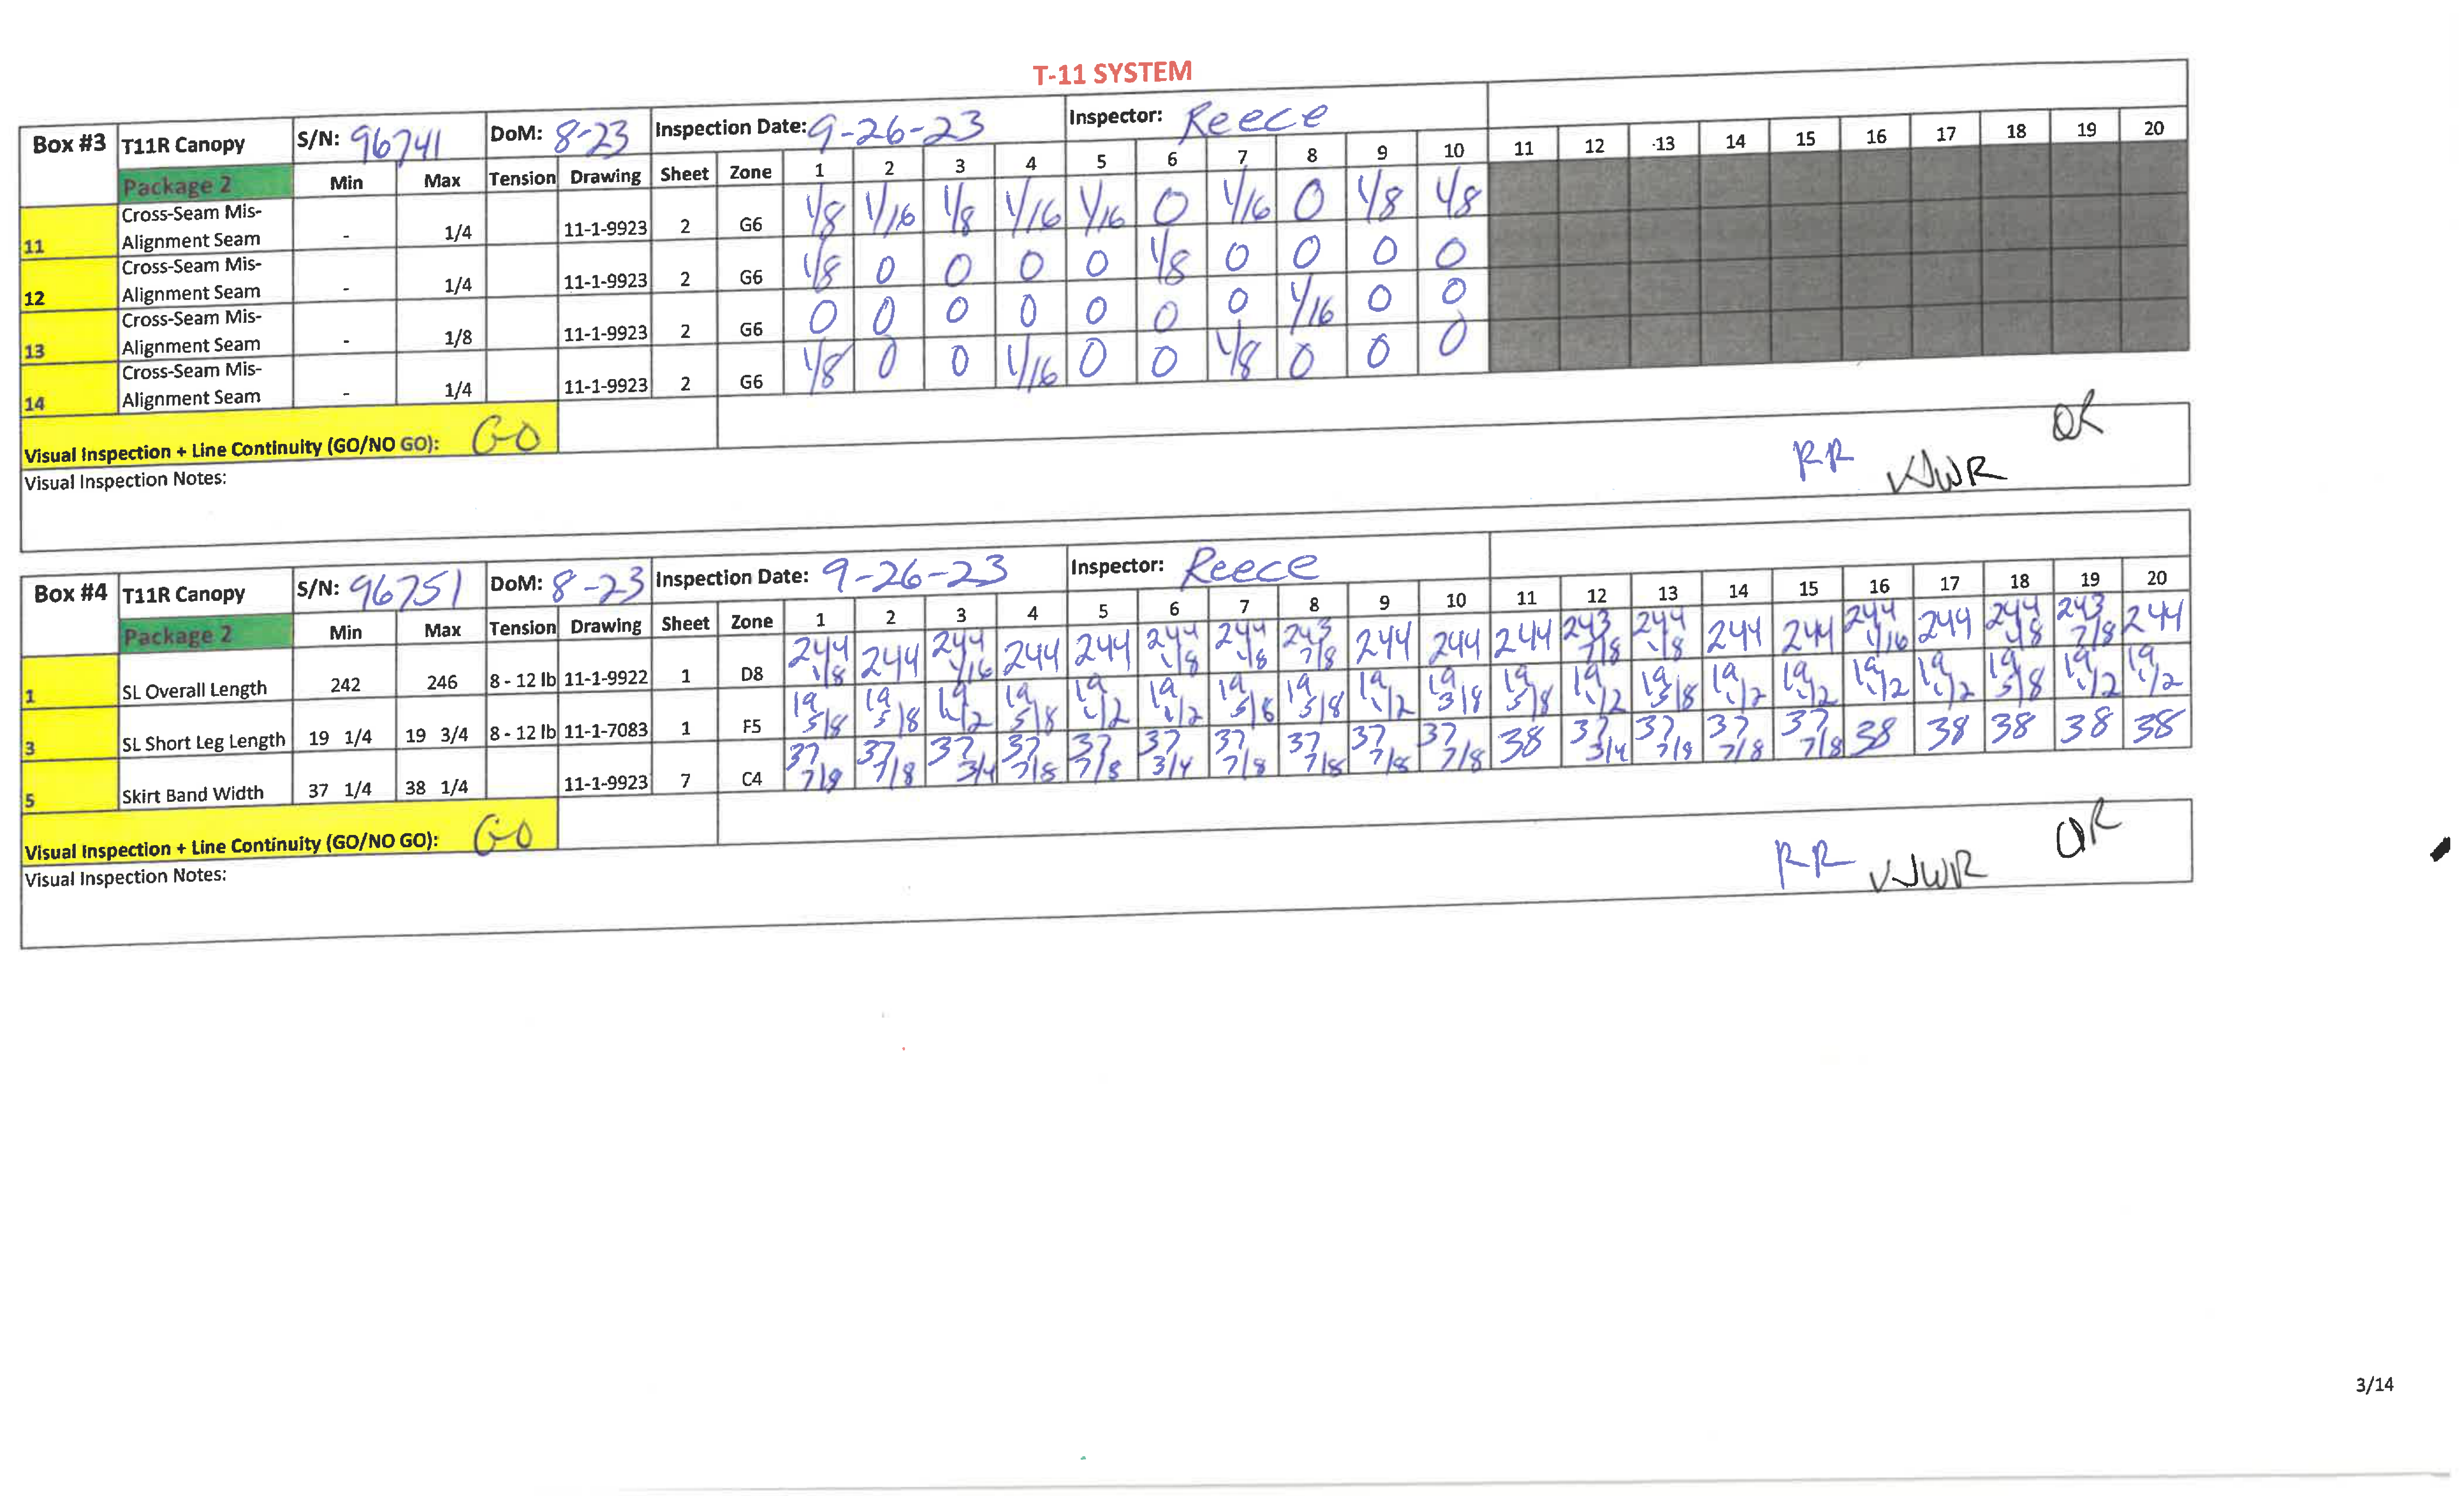 T-11 SYSTEM
Box #3 T11R Canopy S/N: 96741 DoM: 8-23 Inspection Date: 9-26-23 Inspector: Reece
Package 2 Min Max Tension Drawing Sheet Zone 1 2 3 4 5 6 7 8 9 10 11 12 13 14 15 16 17 18 19 20
11 Cross-Seam Mis-Alignment Seam - 1/4 11-1-9923 2 G6 1/8 1/16 1/8 1/16 1/16 0 1/16 0 1/8 1/8
12 Cross-Seam Mis-Alignment Seam - 1/4 11-1-9923 2 G6 1/8 0 0 0 0 1/8 0 0 0 0
13 Cross-Seam Mis-Alignment Seam - 1/8 11-1-9923 2 G6 0 0 0 0 0 0 0 1/16 0 0
14 Cross-Seam Mis-Alignment Seam - 1/4 11-1-9923 2 G6 1/8 0 0 1/16 0 0 1/8 0 0 0
Visual Inspection + Line Continuity (GO/NO GO): GO
Visual Inspection Notes:
RR WWR OR
Box #4 T11R Canopy S/N: 96751 DoM: 8-23 Inspection Date: 9-26-23 Inspector: Reece
Package 2 Min Max Tension Drawing Sheet Zone 1 2 3 4 5 6 7 8 9 10 11 12 13 14 15 16 17 18 19 20
1 SL Overall Length 242 246 8 - 12 lb 11-1-9922 1 D8 244 1/8 244 244 1/16 244 244 244 1/8 244 1/8 243 7/8 244 244 244 243 7/8 244 1/8 244 244 244 1/16 244 244 1/8 243 7/8 244
3 SL Short Leg Length 19 1/4 19 3/4 8 - 12 lb 11-1-7083 1 F5 19 5/8 19 5/8 19 1/2 19 5/8 19 1/2 19 1/2 19 5/8 19 5/8 19 1/2 19 3/8 19 5/8 19 1/2 19 5/8 19 1/2 19 1/2 19 1/2 19 1/2 19 5/8 19 1/2 19 1/2
5 Skirt Band Width 37 1/4 38 1/4 11-1-9923 7 C4 37 7/8 37 7/8 37 3/4 37 7/8 37 7/8 37 3/4 37 7/8 37 7/8 37 7/8 37 7/8 38 37 3/4 37 7/8 37 7/8 37 7/8 38 38 38 38 38
Visual Inspection + Line Continuity (GO/NO GO): GO
Visual Inspection Notes:
RR WWR OR
3/14